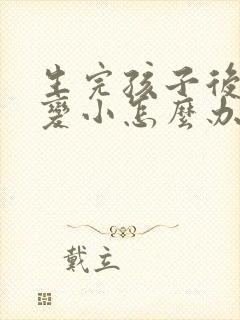 生完孩子後
變小怎麼办
戴立